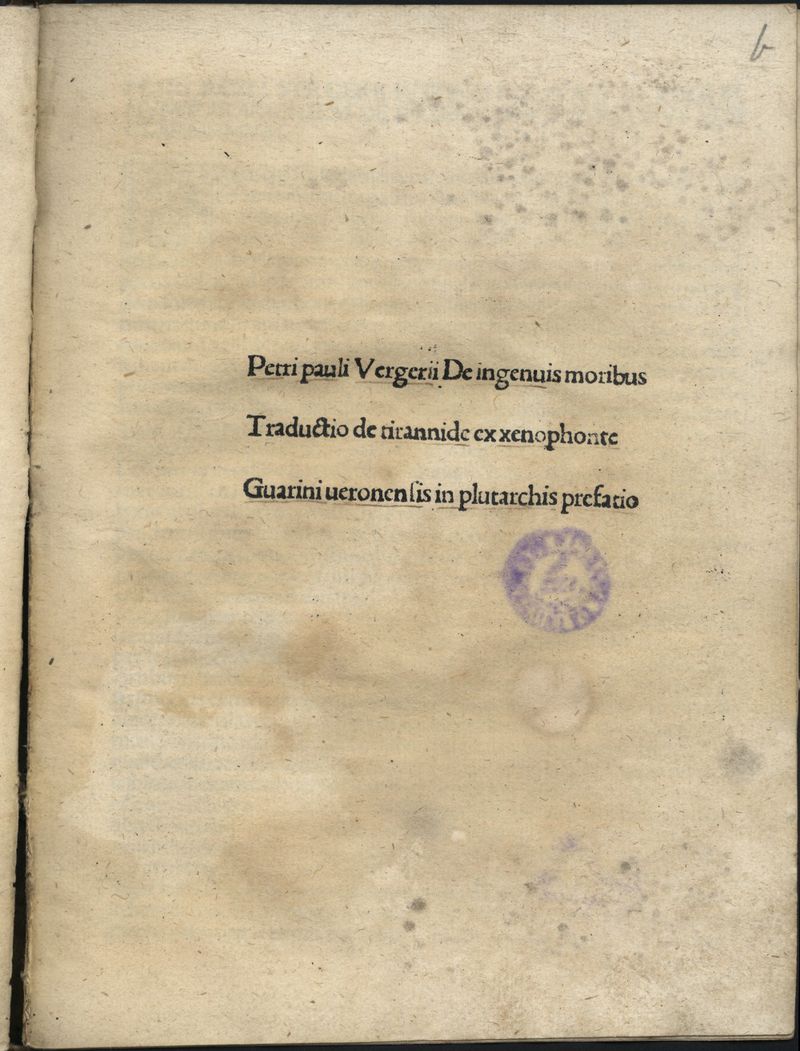 b
Petri pauli Vergerii De ingenuis moribus
Traductio de tirannide ex xenophonte
Guarini ueronensis in plutarchis prefatio